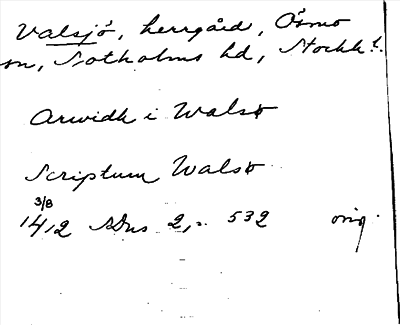 Valsjö, herrgård, Ösmo
sn, Sotholms hd, Stockh l.
Arwidh i Walsø
Scriptum Walsø
3/8
1412 SDns 2, s. 532 orig.